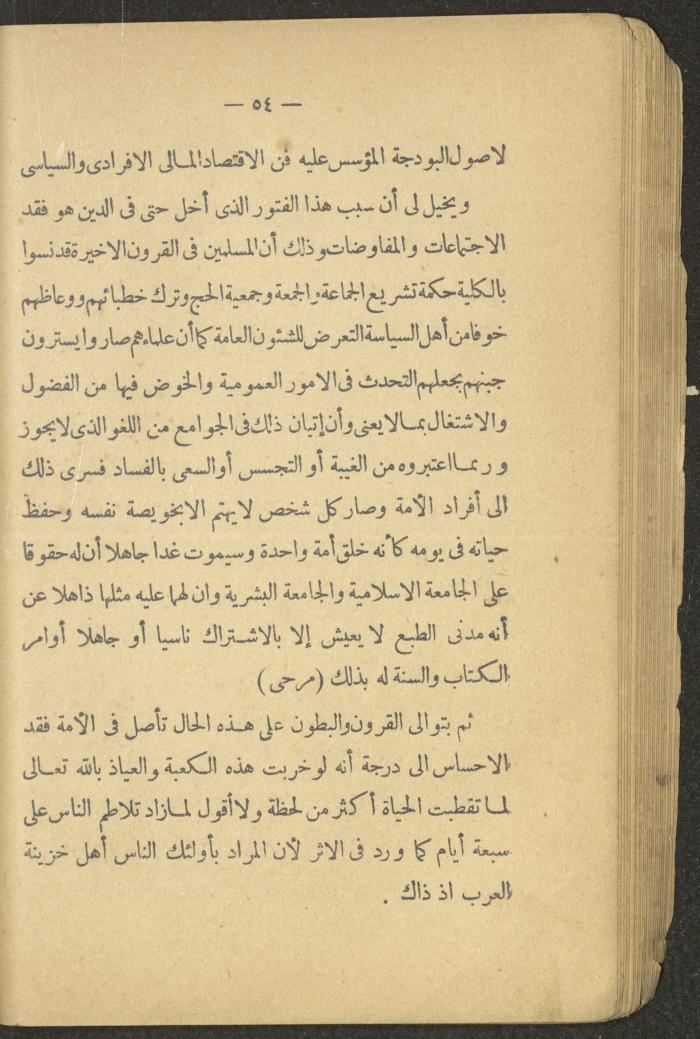 — ٥٤ —
لاصول البودجة المؤسس عليه فن الاقتصاد المالى الافرادى والسياسى
ويخيل لى أن سبب هذا الفتور الذى أخل حتى فى الدين هو فقد
الاجتماعات والمفاوضات وذلك أن المسلمين فى القرون الاخيرة قد نسوا
بالكلية حكمة تشريع الجماعة والجمعة وجمعية الحج وترك خطبائهم ووعاظهم
خوفا من أهل السياسة التعرض للشئون العامة كما أن علماءهم صاروا يسترون
جبنهم بجعلهم التحدث فى الامور العمومية والخوض فيها من الفضول
والاشتغال بما لا يعنى وأن إتيان ذلك فى الجوامع من اللغو الذى لا يجوز
وربما اعتبروه من الغيبة أو التجسس أو السعى بالفساد فسرى ذلك
الى أفراد الأمة وصار كل شخص لا يهتم الا بخويصة نفسه وحفظ
حياته فى يومه كأنه خلق أمة واحدة وسيموت غدا جاهلا أن له حقوقا
على الجامعة الاسلامية والجامعة البشرية وان لهما عليه مثلها ذاهلا عن
أنه مدنى الطبع لا يعيش إلا بالاشتراك ناسيا أو جاهلا أوامر
الكتاب والسنة له بذلك (مرحى)
ثم بتوالى القرون والبطون على هذه الحال تأصل فى الأمة فقد
الاحساس الى درجة أنه لو خربت هذه الكعبة والعياذ بالله تعالى
لما تقطبت الحياة أكثر من لحظة ولا أقول لما زاد تلاطم الناس على
سبعة أيام كما ورد فى الاثر لأن المراد بأولئك الناس أهل خزينة
العرب اذ ذاك .